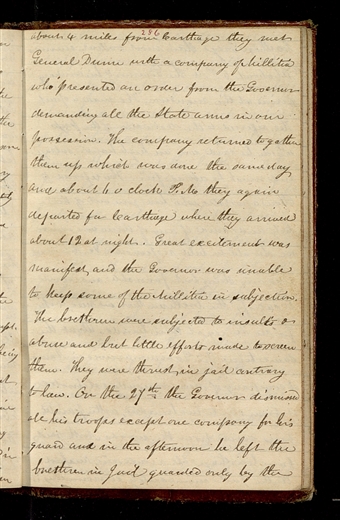 286
about 4 miles from Carthage they met
General Dunn with a company of millitia
who presented an order from the Govenor
demanding all the State arms in our
possession. The company returned to gather
them up which was done the same day
and about 6 o clock P.M. they again
departed for Carthage where they arrived
about 12 at night. Great excitement was
manifest and the Govenor was unable
to keep some of the millitia in subjection.
The bretheren were subjected to insults &
abuse and but little efforts made to screen
them. They were thrust in jail contrary
to law. On the 27th the Govenor dismissed
all his troops except one company for his
guard and in the afternoon he left the
bretheren in Jail guarded only by the